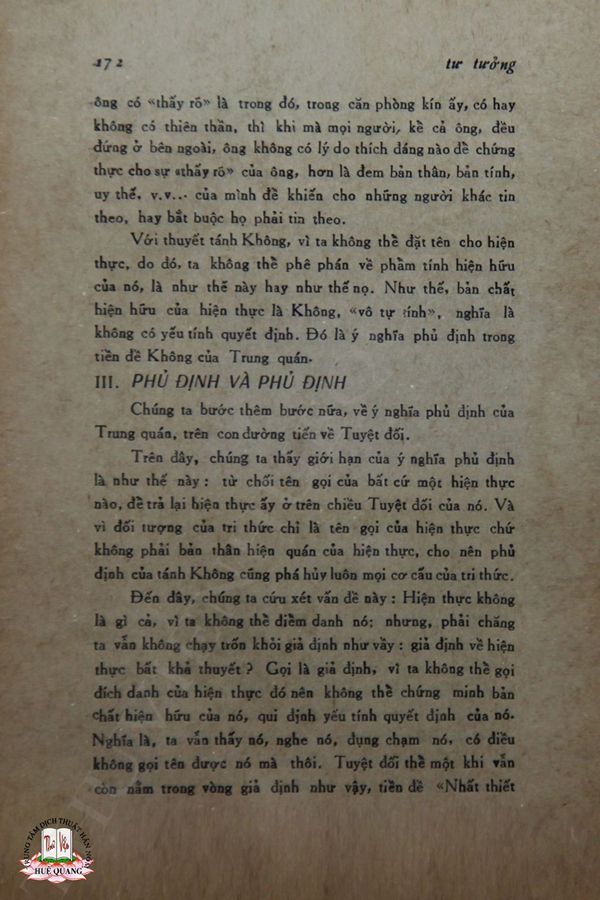 172 tư tưởng
ông có «thấy rõ» là trong đó, trong căn phòng kín ấy, có hay
không có thiên thần, thì khi mà mọi người, kể cả ông, đều
đứng ở bên ngoài, ông không có lý do thích đáng nào để chứng
thực cho sự «thấy rõ» của ông, hơn là đem bản thân, bản tính,
uy thế, v.v... của mình để khiến cho những người khác tin
theo, hay bắt buộc họ phải tin theo.
Với thuyết tánh Không, vì ta không thể đặt tên cho hiện
thực, do đó, ta không thể phê phán về phẩm tính hiện hữu
của nó, là như thế này hay như thế nọ. Như thế, bản chất
hiện hữu của hiện thực là Không, «vô tự tính», nghĩa là
không có yếu tính quyết định. Đó là ý nghĩa phủ định trong
tiền đề Không của Trung quán.
III. PHỦ ĐỊNH VÀ PHỦ ĐỊNH
Chúng ta bước thêm bước nữa, về ý nghĩa phủ định của
Trung quán, trên con đường tiến về Tuyệt đối.
Trên đây, chúng ta thấy giới hạn của ý nghĩa phủ định
là như thế này : từ chối tên gọi của bất cứ một hiện thực
nào, để trả lại hiện thực ấy ở trên chiều Tuyệt đối của nó. Và
vì đối tượng của tri thức chỉ là tên gọi của hiện thực chứ
không phải bản thân hiện quán của hiện thực, cho nên phủ
định của tánh Không cũng phá hủy luôn mọi cơ cấu của tri thức.
Đến đây, chúng ta cứu xét vấn đề này : Hiện thực không
là gì cả, vì ta không thể điểm danh nó; nhưng, phải chăng
ta vẫn không chạy trốn khỏi giả định như vầy : giả định về hiện
thực bất khả thuyết ? Gọi là giả định, vì ta không thể gọi
đích danh của hiện thực đó nên không thể chứng minh bản
chất hiện hữu của nó, qui định yếu tính quyết định của nó.
Nghĩa là, ta vẫn thấy nó, nghe nó, đụng chạm nó, có điều
không gọi tên được nó mà thôi. Tuyệt đối thể một khi vẫn
còn nằm trong vòng giả định như vậy, tiền đề «Nhất thiết
TRUNG TÂM DỊCH THUẬT HÁN NÔM
HUỆ QUANG